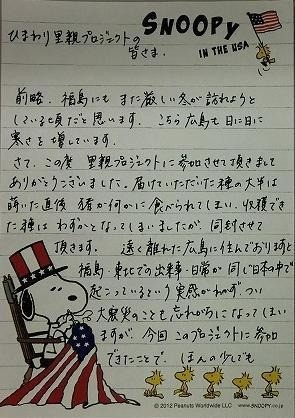 SNOOPY
IN THE USA
ひまわり里親プロジェクトの
皆さま
前略、福島にも また厳しい冬が訪れようと
している頃だと思います。こちら広島も日に日に
寒さを増しています。
さて、この度 里親プロジェクトに参加させて頂きまして
ありがとうございました。届けていただいた種の大半は
萌いた直後 猪か何かに食べられてしまい、収穫でき
た種は わずかとなってしまいましたが、同封させて
頂きます。 遠く離れた広島に住んでおりますと
福島・東北での出来事・日常が 同じ日本の中で
起こっているという実感がわかず、つい
大震災のことも忘れがちになってしまい
ますが、今回 このプロジェクトに参加
できたことで、ほんの少しでも
© 2012 Peanuts Worldwide LLC www.SNOOPY.co.jp